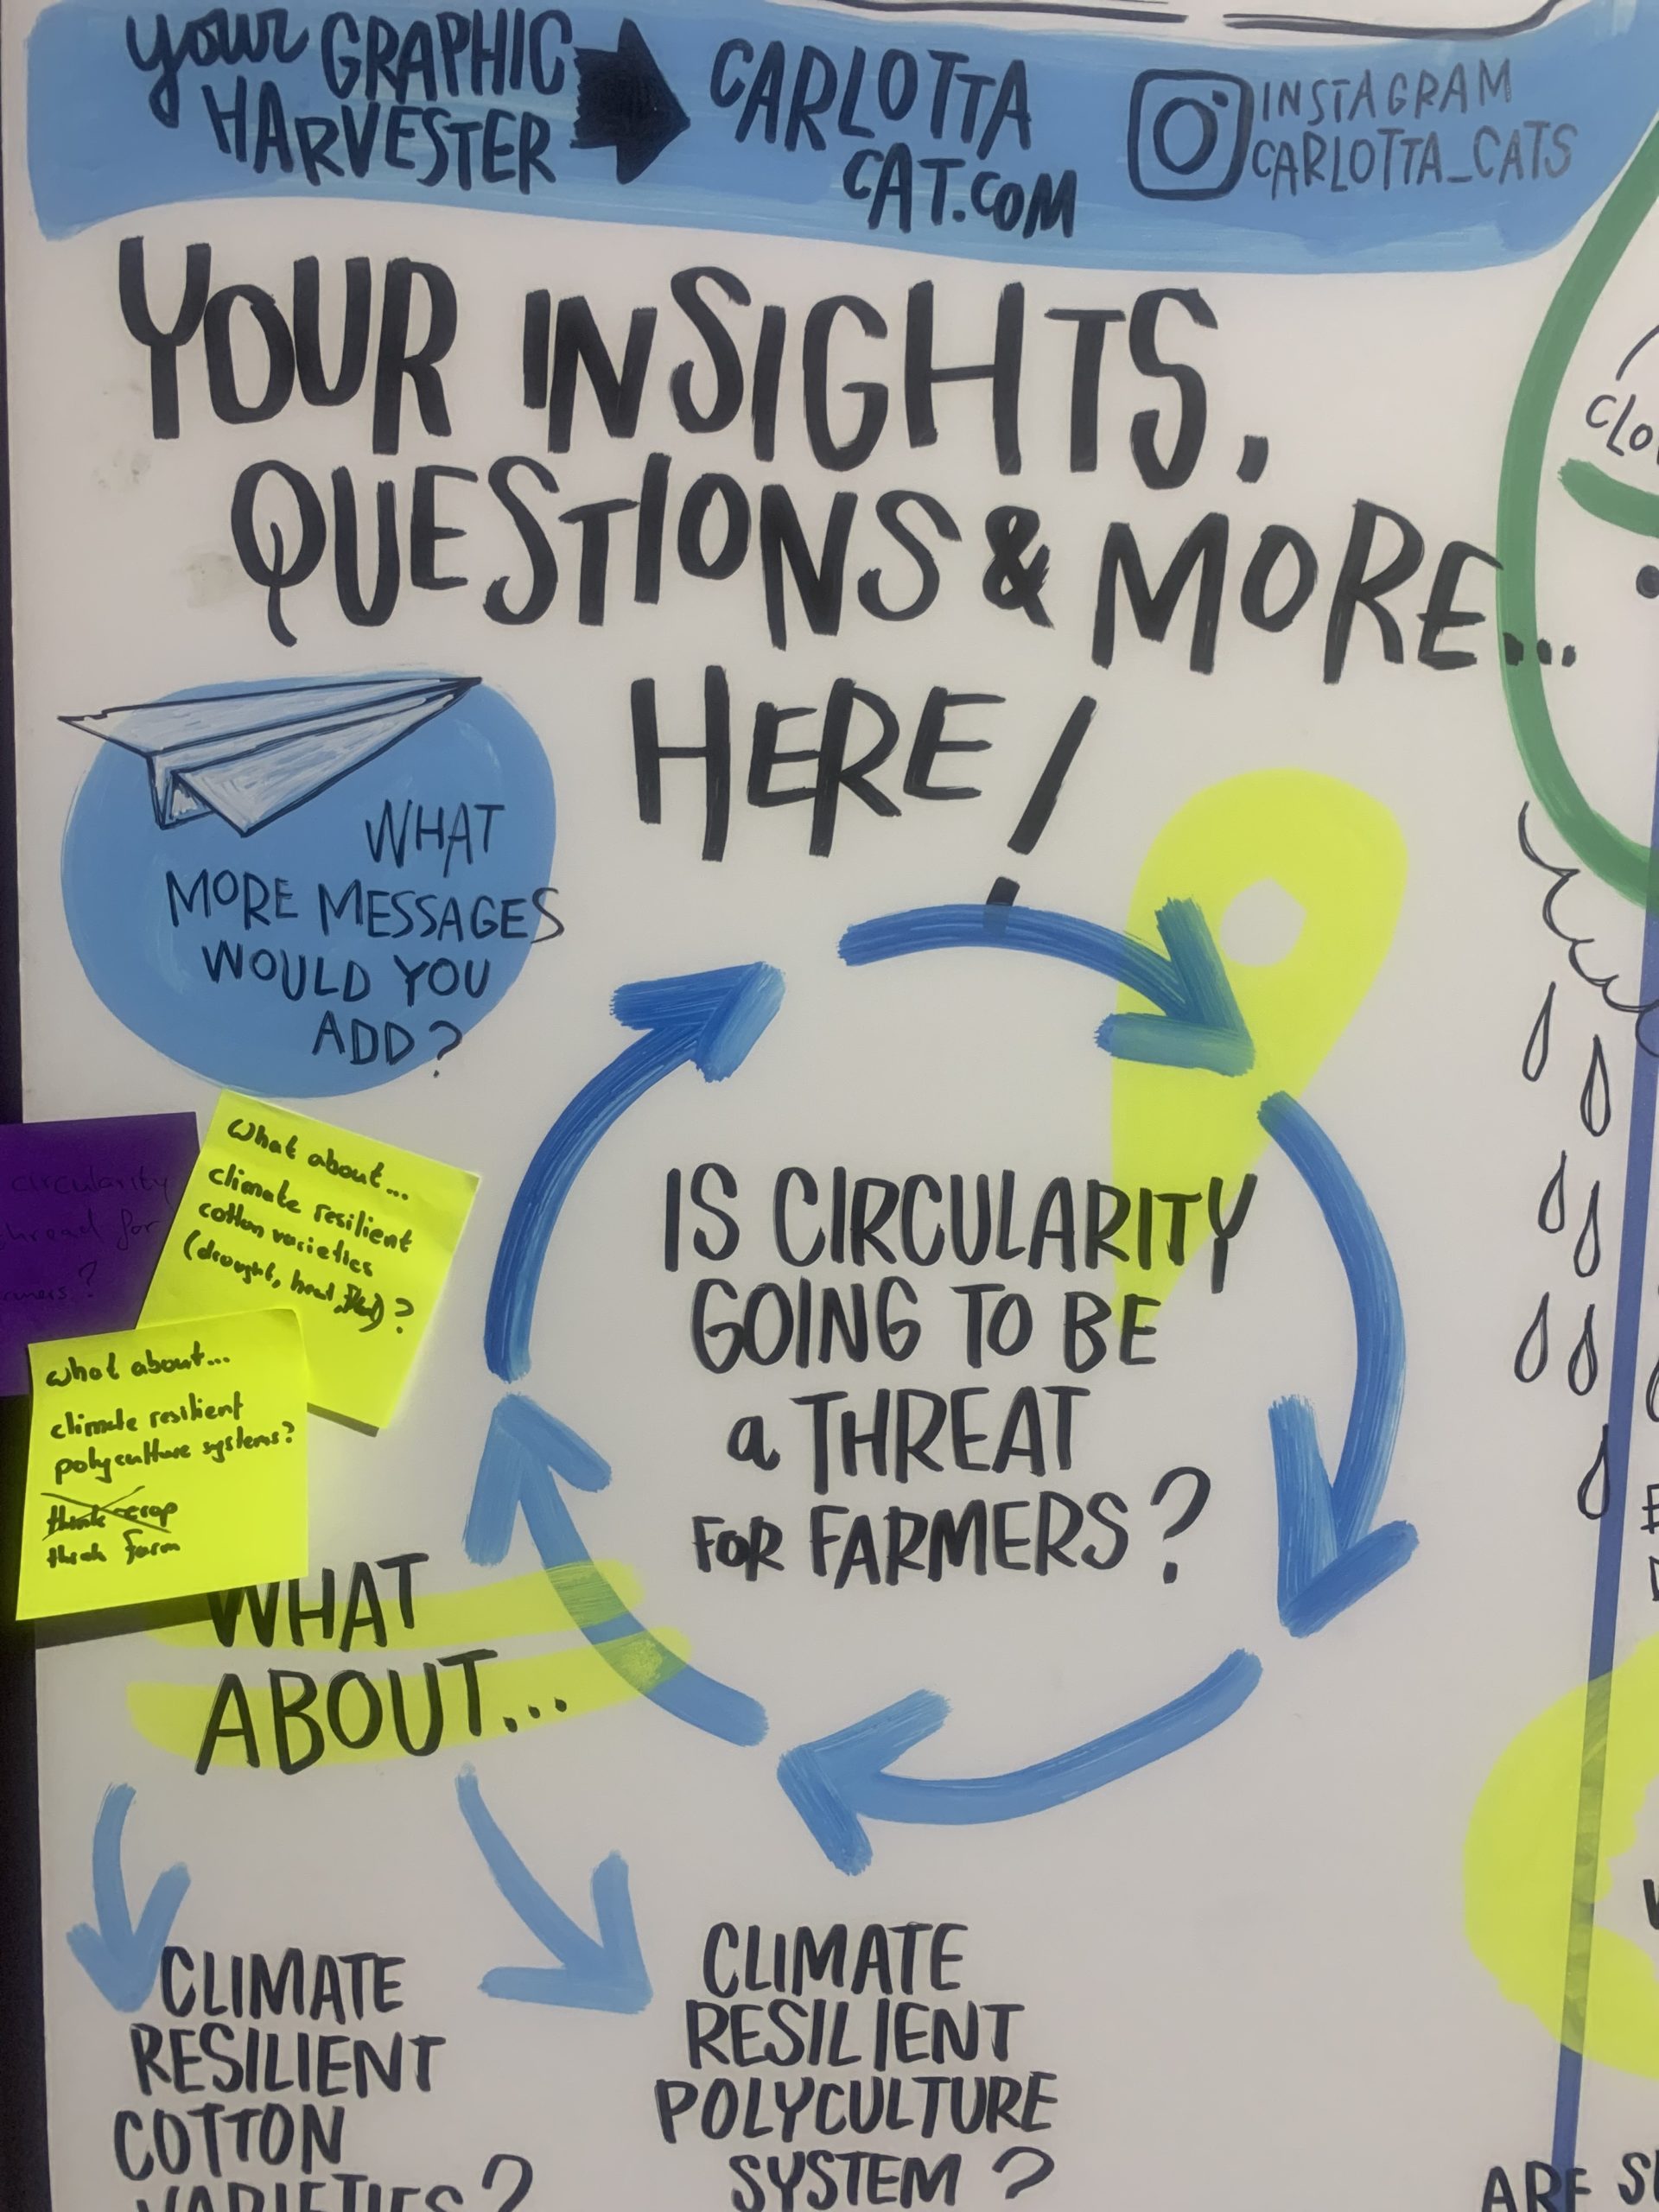 your GRAPHIC
HARVESTER
CARLOTTA
CAT.COM
INSTAGRAM
CARLOTTA_CATS
YOUR INSIGHTS,
QUESTIONS & MORE...
HERE!
WHAT
MORE MESSAGES
WOULD YOU
ADD?
circularity
hread for
rmers?
What about...
climate resilient
cotton varieties
(drought, heat, )?
what about...
climate resilient
polyculture systems?
think crop
think farm
IS CIRCULARITY
GOING TO BE
a THREAT
FOR FARMERS?
WHAT
ABOUT...
CLIMATE
RESILIENT
COTTON
VARIETIES?
CLIMATE
RESILIENT
POLYCULTURE
SYSTEM?
CLO
ARE S